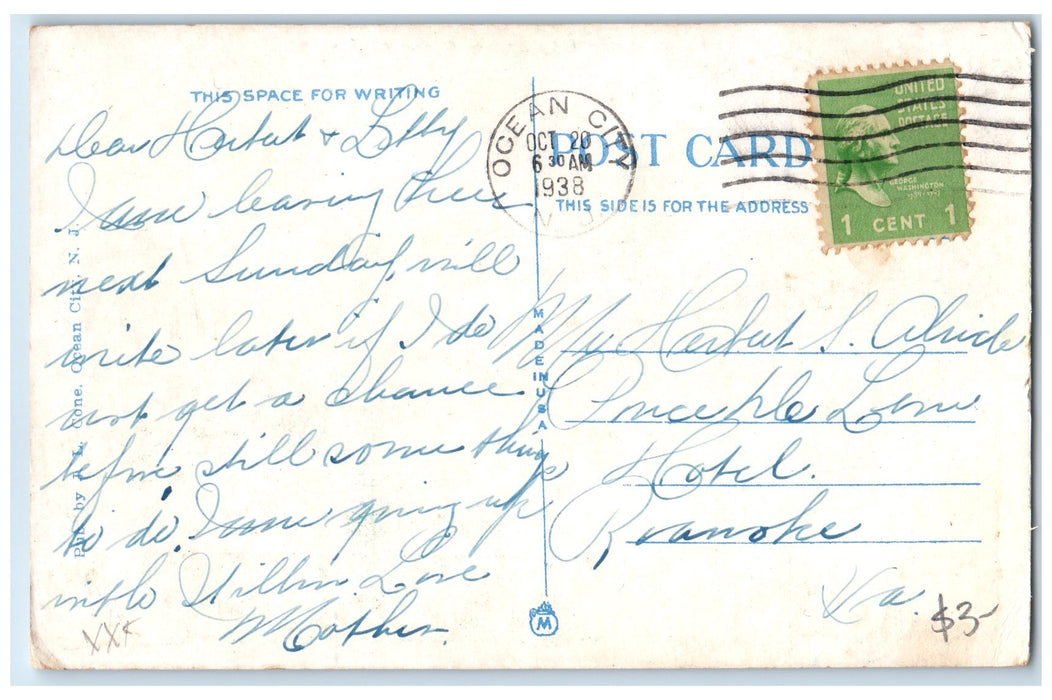 THIS SPACE FOR WRITING
Dear Herbert &
I am leaving here
next Sunday, will
write later if I do
not get a chance
before still some things
to do. I am going up
with Love
Mother.
Pub. by J. L. Cone, Ocean City, N. J.
MADE IN U.S.A.
M
OCEAN CITY
OCT 20
6 30 AM
1938
N.J.
POST CARD
THIS SIDE IS FOR THE ADDRESS
UNITED
STATES
POSTAGE
GEORGE
WASHINGTON
1 CENT 1
Mr Herbert S.
Hotel.
Roanoke
Va.
$3-
XX¢